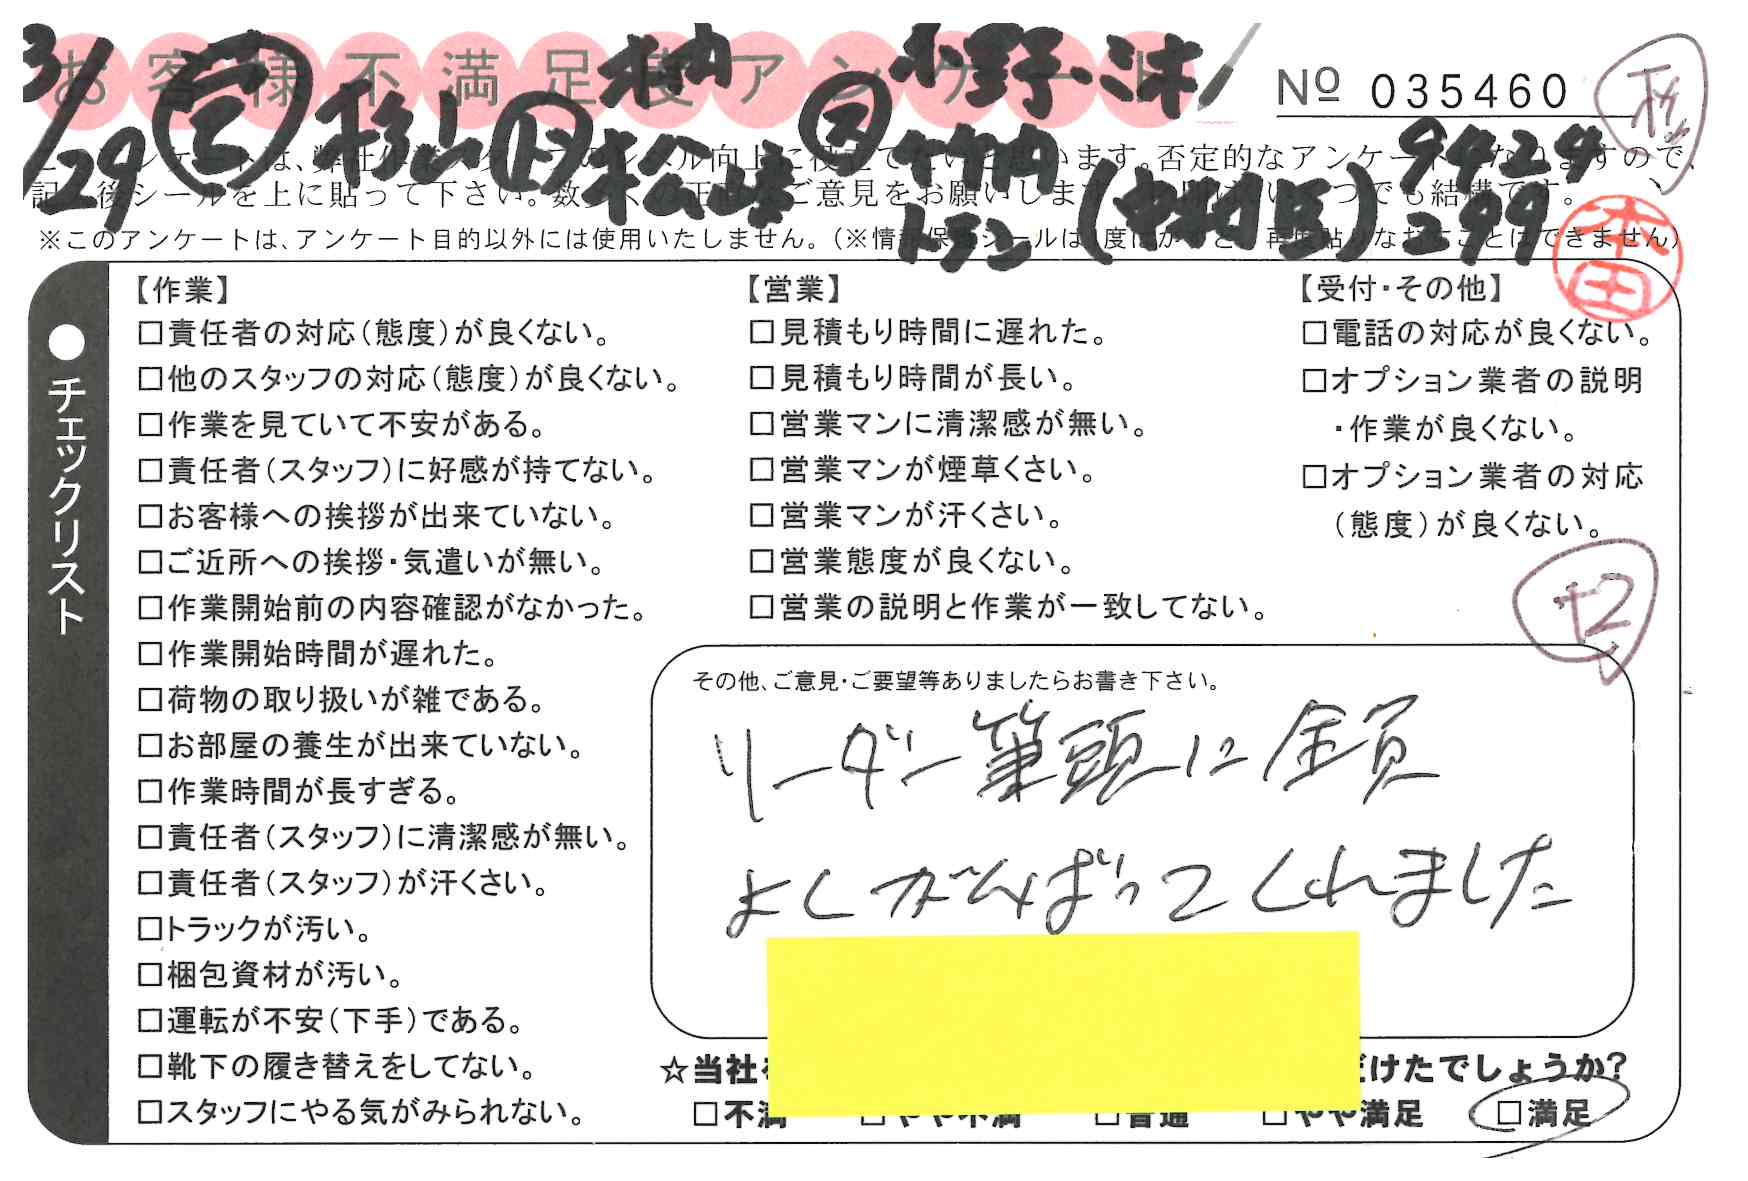 お客様不満足度アンケート
3/29
杉山
松崎
竹内
トラン
(中村区)
9424
299
№ 035460
本田
※このアンケートは、アンケート目的以外には使用いたしません。
● チェックリスト
【作業】
□責任者の対応(態度)が良くない。
□他のスタッフの対応(態度)が良くない。
□作業を見ていて不安がある。
□責任者(スタッフ)に好感が持てない。
□お客様への挨拶が出来ていない。
□ご近所への挨拶・気遣いが無い。
□作業開始前の内容確認がなかった。
□作業開始時間が遅れた。
□荷物の取り扱いが雑である。
□お部屋の養生が出来ていない。
□作業時間が長すぎる。
□責任者(スタッフ)に清潔感が無い。
□責任者(スタッフ)が汗くさい。
□トラックが汚い。
□梱包資材が汚い。
□運転が不安(下手)である。
□靴下の履き替えをしてない。
□スタッフにやる気がみられない。
【営業】
□見積もり時間に遅れた。
□見積もり時間が長い。
□営業マンに清潔感が無い。
□営業マンが煙草くさい。
□営業マンが汗くさい。
□営業態度が良くない。
□営業の説明と作業が一致してない。
【受付・その他】
□電話の対応が良くない。
□オプション業者の説明
・作業が良くない。
□オプション業者の対応
(態度)が良くない。
その他、ご意見・ご要望等ありましたらお書き下さい。
リーダー筆頭に全員
よくがんばってくれました
☆当社 だけたでしょうか?
□不満 □やや不満 □普通 □やや満足 □満足